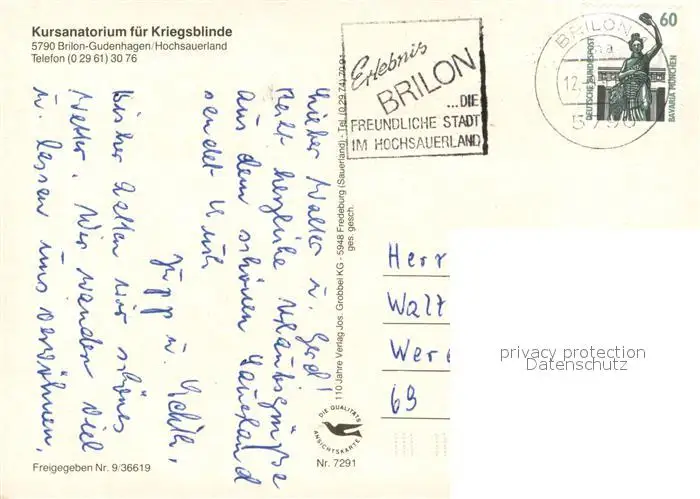 Kursanatorium für Kriegsblinde
5790 Brilon-Gudenhagen/Hochsauerland
Telefon (0 29 61) 30 76
Erlebnis
BRILON
...DIE
FREUNDLICHE STADT
IM HOCHSAUERLAND
BRILON
12.
5790
60
DEUTSCHE BUNDESPOST
BAVARIA MÜNCHEN
Lieber Walter u. Gerd!
Recht herzliche Urlaubsgrüße
aus dem schönen Sauerland
sendet Euch
Jupp u.
Bisher hatten wir schönes
Wetter. Wir wandern viel
u. lassen uns verwöhnen.
110 Jahre Verlag Jos. Grobbel KG - 5948 Fredeburg (Sauerland) - Tel. (0 29 74) 70 91
ges. gesch.
Herr
Walt
Wer
69
privacy protection
Datenschutz
DIE QUALITÄTS
ANSICHTSKARTE
Nr. 7291
Freigegeben Nr. 9/36619